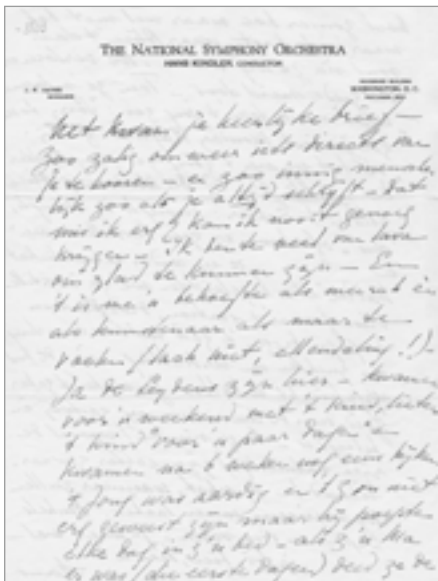 THE NATIONAL SYMPHONY ORCHESTRA
HANS KINDLER, CONDUCTOR
WASHINGTON, D. C.
net kwam je heerlijke brief —
zoo zalig om weer iets directs van
je te hooren — en zoo innig menschelijk
zoo als je altijd schrijft — dat
mis ik erg & kan ik nooit genoeg
krijgen — ik ben te
om glad te kunnen zijn — En
't is me 'n behoefte als mensch en
als kunstenaar als maar te
(lach niet, ellendeling!) —
Ja de Leydens zijn hier — kwamen
voor 'n weekend met 't kind, lieten
't kind "voor 'n paar dagen" en
kwamen na 6 weken nog eens kijken
't jong was aardig en 't zou niet
erg geweest zijn maar hij poepte
elke dag in z'n bed — als z'n Ma
er was (die eerste dagen) deed ze de